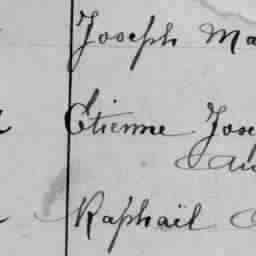 Joseph Ma
Etienne Jose
Raphaël